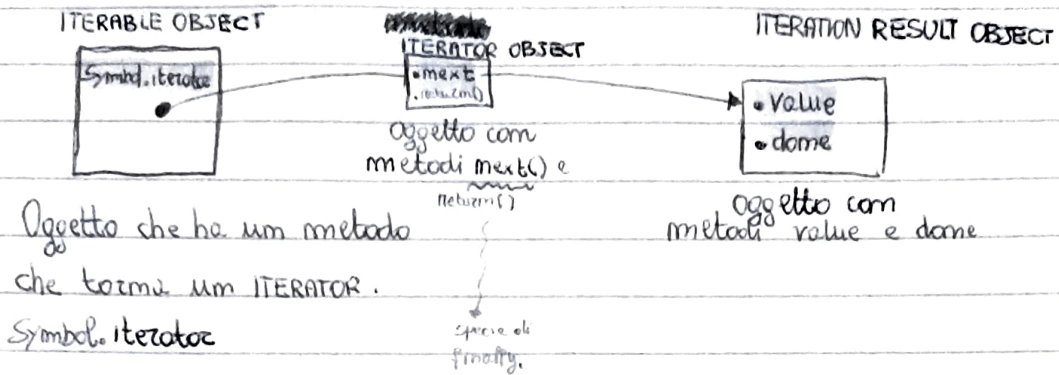 ITERABLE OBJECT
Symbol.iterator
ITERATOR OBJECT
• next
• return()
oggetto con
metodi next() e
return()
specie di
finally.
ITERATION RESULT OBJECT
• value
• done
oggetto con
metodi value e done
Oggetto che ha un metodo
che torna un ITERATOR.
Symbol.iterator